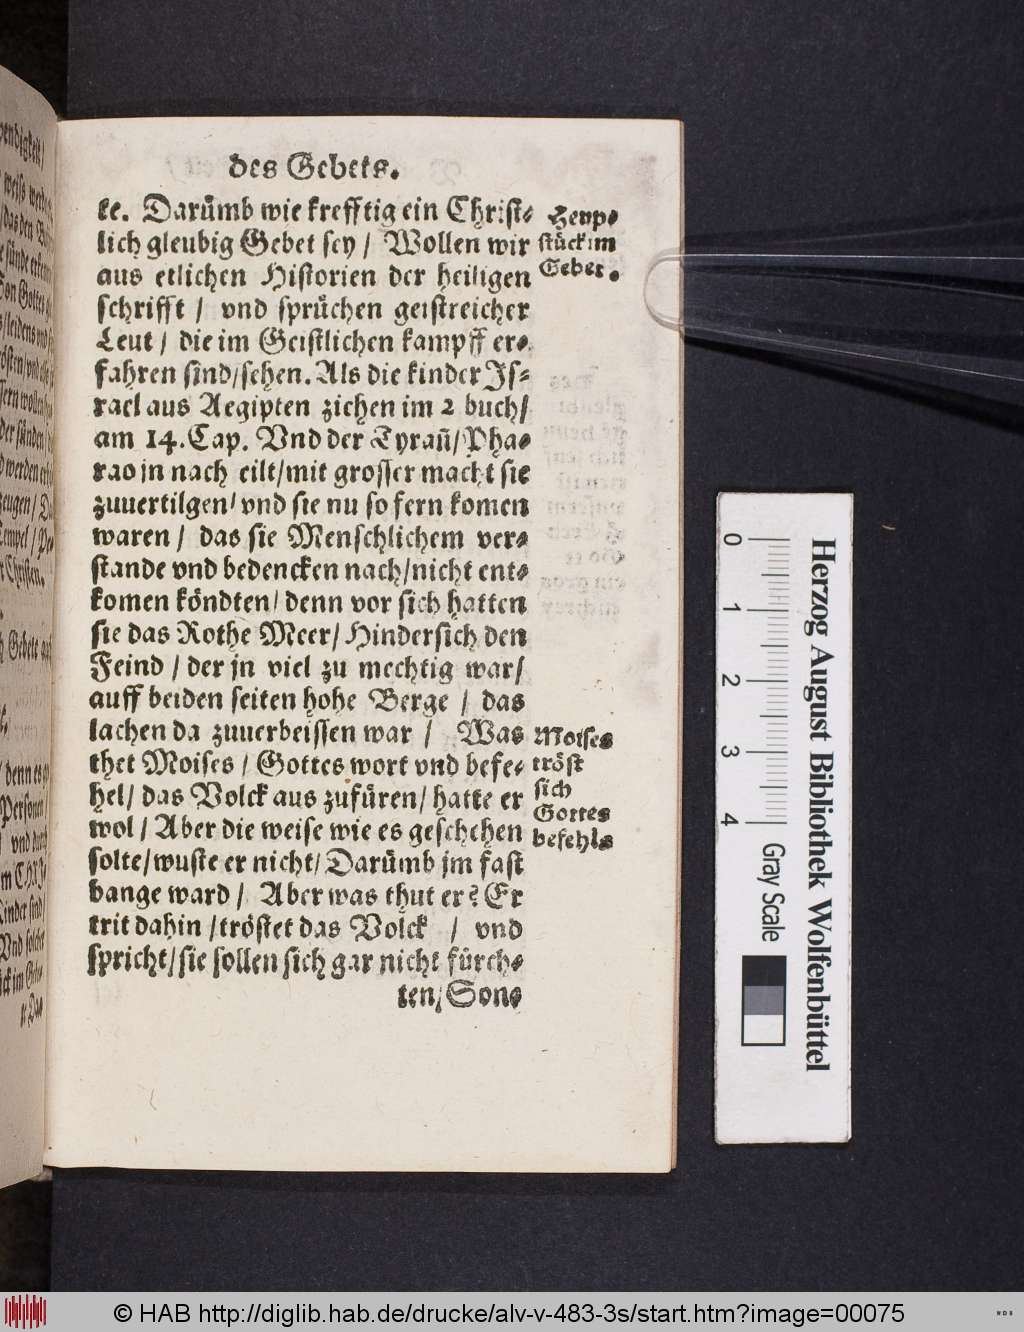 des Gebets.
ke. Darümb wie krefftig ein Christ-
lich gleubig Gebet sey / Wollen wir
aus etlichen Historien der heiligen
schrifft / vnd sprüchen geistreicher
Leut / die im Geistlichen kampff er-
fahren sind/sehen. Als die kinder Js-
rael aus Aegipten zichen im 2 buch/
am 14. Cap. Vnd der Tyrañ/Pha-
rao jn nach eilt/mit grosser macht sie
zuuertilgen/ vnd sie nu so fern komen
waren / das sie Menschlichem ver-
stande vnd bedencken nach/nicht ent-
komen köndten/ denn vor sich hatten
sie das Rothe Meer/ Hindersich den
Feind / der jn viel zu mechtig war/
auff beiden seiten hohe Berge / das
lachen da zuuerbeissen war / Was
thet Moises / Gottes wort vnd befe-
hel/ das Volck aus zufüren/ hatte er
wol / Aber die weise wie es geschehen
solte/wuste er nicht/ Darümb jm fast
bange ward / Aber was thut er? Er
trit dahin /tröstet das Volck / vnd
spricht/sie sollen sich gar nicht fürch-
ten/ Son-
Heup-
stück im
Gebet.
Moises
tröst
sich
Gottes
befehls
Herzog August Bibliothek Wolfenbüttel
0 1 2 3 4
Gray Scale
© HAB http://diglib.hab.de/drucke/alv-v-483-3s/start.htm?image=00075